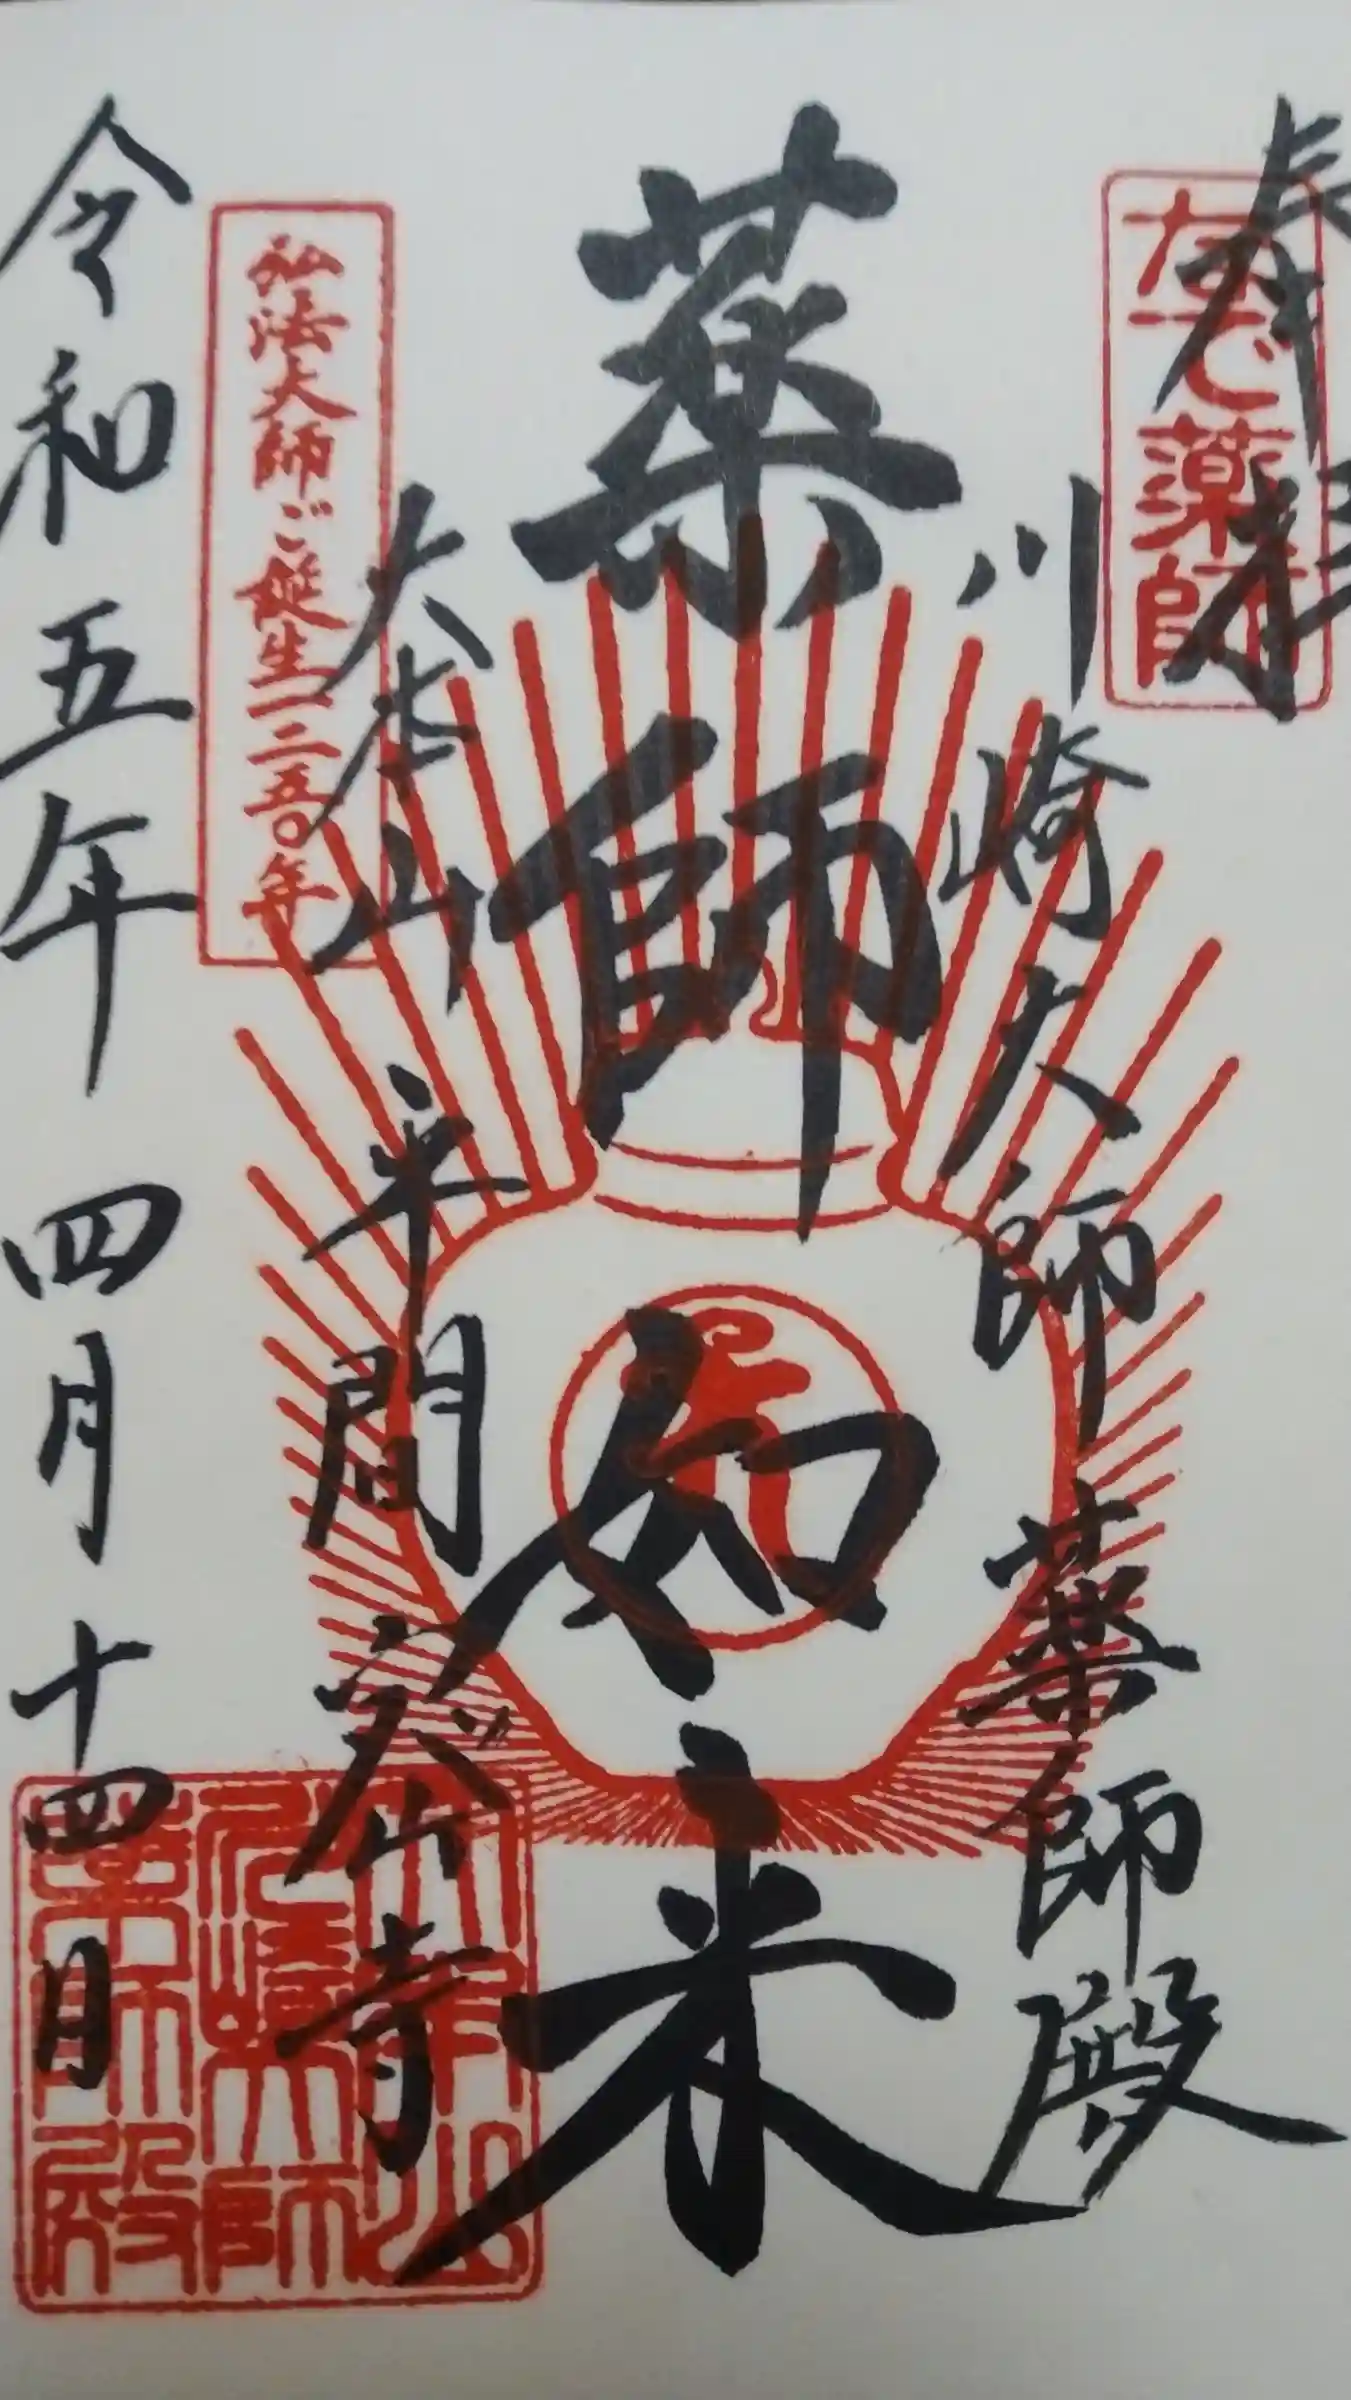 奉拝
なで薬師
川崎大師薬師殿
薬師如来
大本山平間寺
弘法大師ご誕生一二五〇年
大本山川崎大師薬師殿
令和五年四月十四日